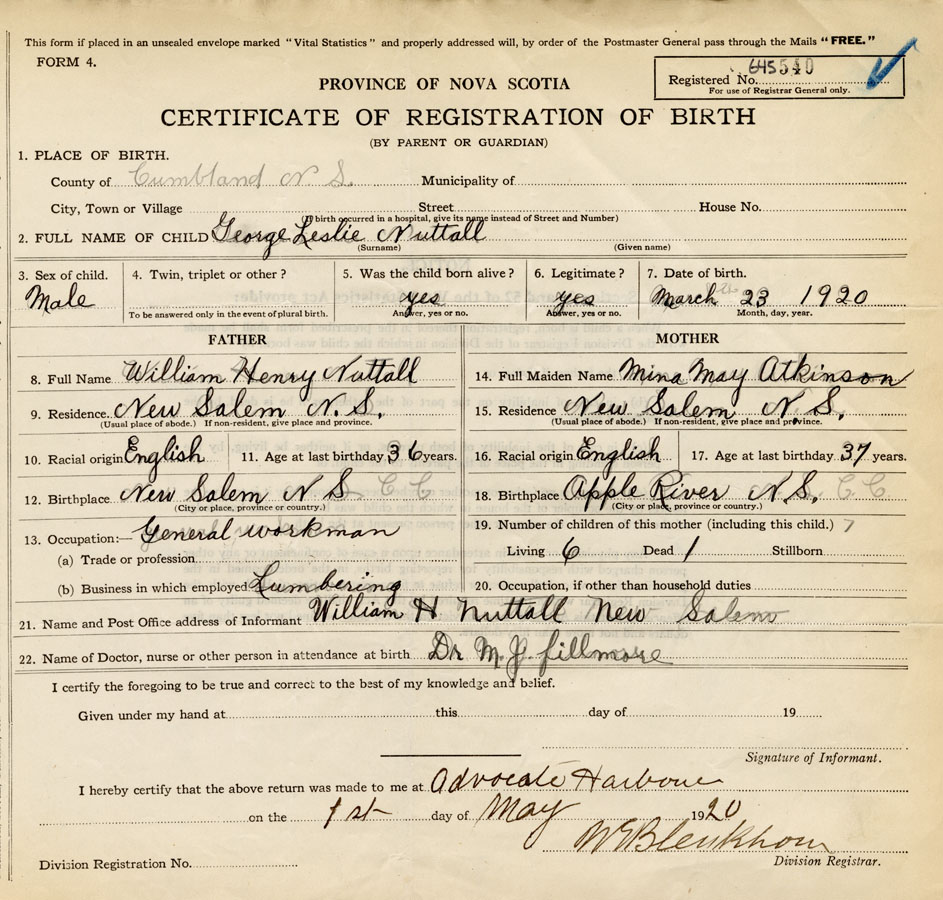 This form if placed in an unsealed envelope marked "Vital Statistics" and properly addressed will, by order of the Postmaster General pass through the Mails "FREE."
FORM 4.
Registered No. 645540
For use of Registrar General only.
PROVINCE OF NOVA SCOTIA
CERTIFICATE OF REGISTRATION OF BIRTH
(BY PARENT OR GUARDIAN)
1. PLACE OF BIRTH.
County of Cumbland N S. Municipality of
City, Town or Village Street House No.
(If birth occurred in a hospital, give its name instead of Street and Number)
2. FULL NAME OF CHILD George Leslie Nuttall
(Surname) (Given name)
3. Sex of child. 4. Twin, triplet or other? 5. Was the child born alive? 6. Legitimate? 7. Date of birth.
Male yes yes March 23 1920
To be answered only in the event of plural birth. Answer, yes or no. Answer, yes or no. Month, day, year.
FATHER
8. Full Name William Henry Nuttall
9. Residence. New Salem N. S.
(Usual place of abode.) If non-resident, give place and province.
10. Racial origin English 11. Age at last birthday 36 years.
12. Birthplace New Salem N S C C
(City or place, province or country.)
13. Occupation:— General workman
(a) Trade or profession
(b) Business in which employed Lumbering
MOTHER
14. Full Maiden Name Mina May Atkinson
15. Residence New Salem N S.
(Usual place of abode.) If non-resident, give place and province.
16. Racial origin English 17. Age at last birthday 37 years.
18. Birthplace Apple River N.S. C C
(City or place, province or country.)
19. Number of children of this mother (including this child.) 7
Living 6 Dead 1 Stillborn
20. Occupation, if other than household duties
21. Name and Post Office address of Informant William H Nuttall New Salem
22. Name of Doctor, nurse or other person in attendance at birth Dr M. J. fillmore
I certify the foregoing to be true and correct to the best of my knowledge and belief.
Given under my hand at this day of 19
Signature of Informant.
I hereby certify that the above return was made to me at Advocate Harbour
on the 1st day of May 1920
Blenkhorn
Division Registration No. Division Registrar.